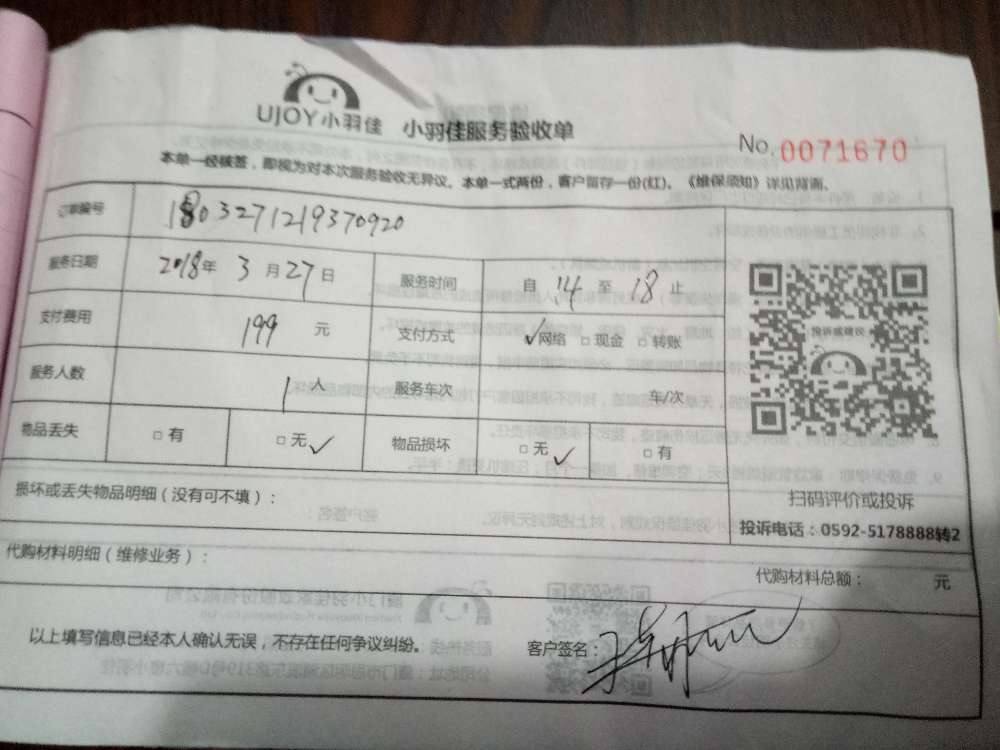 UJOY小羽佳 小羽佳服务验收单
No. 0071670
本单一经核签，即视为对本次服务验收无异议。本单一式两份，客户留存一份(红)。《维保须知》详见背面。
订单编号 1803271219370920
服务日期 2018年 3月27日 服务时间 自 14 至 18 止
支付费用 199 元 支付方式 ✓网络 □现金 □转账
服务人数 1人 服务车次 车/次
物品丢失 □有 □无✓ 物品损坏 □无✓ □有
投诉或建议
扫码评价或投诉
投诉电话：0592-5178888转2
损坏或丢失物品明细（没有可不填）：
代购材料明细（维修业务）：
代购材料总额： 元
以上填写信息已经本人确认无误，不存在任何争议纠纷。 客户签名：